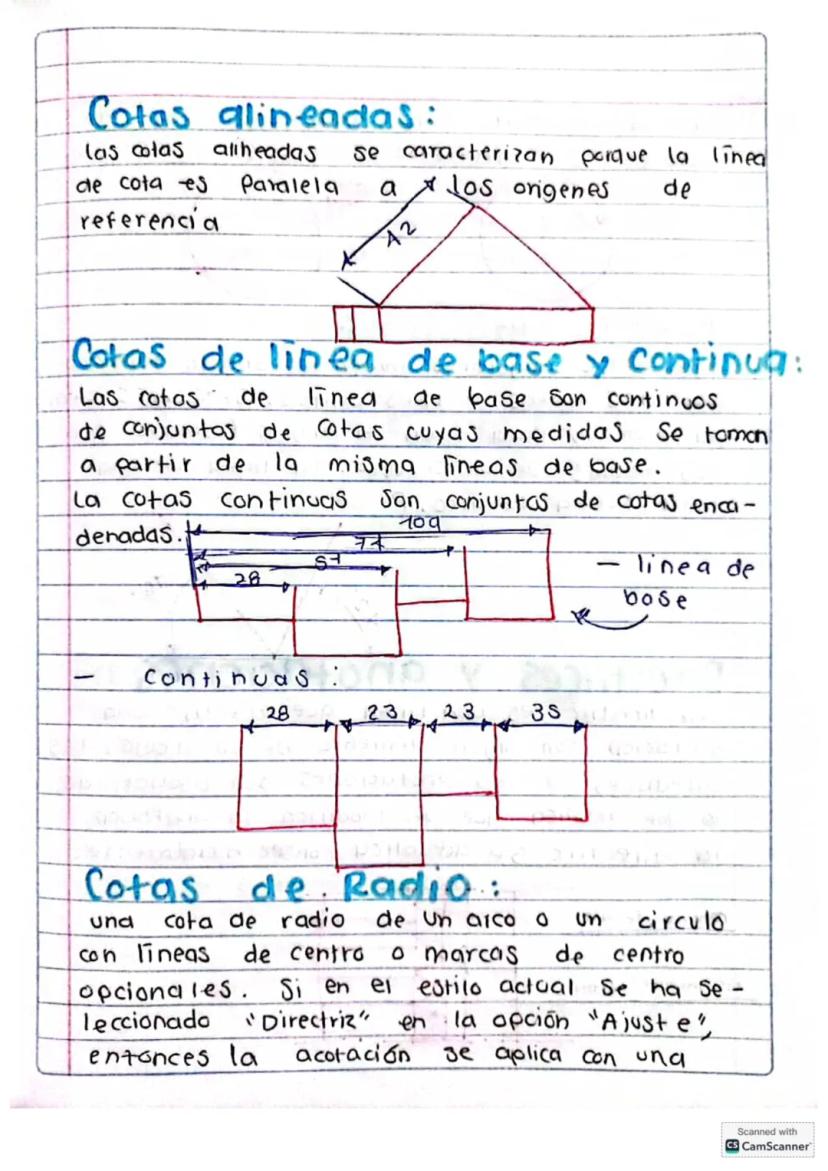 Cotas alineadas:
las cotas alineadas se caracterizan porque la línea
de cota es Paralela a los origenes de
referencia
A2
Cotas de línea de base y Continua:
Las cotas de línea de base son continuos
de conjuntos de cotas cuyas medidas se toman
a partir de la misma líneas de base.
La cotas continuas son conjuntos de cotas enca-
denadas.
109
77
51
28
- línea de
base
- Continuas:
28 23 23 35
Cotas de Radio:
una cota de radio de un arco o un circulo
con líneas de centro o marcas de centro
opcionales. Si en el estilo actual se ha se-
leccionado "Directriz" en la opción "Ajuste",
entonces la acotación se aplica con una
Scanned with
CS CamScanner